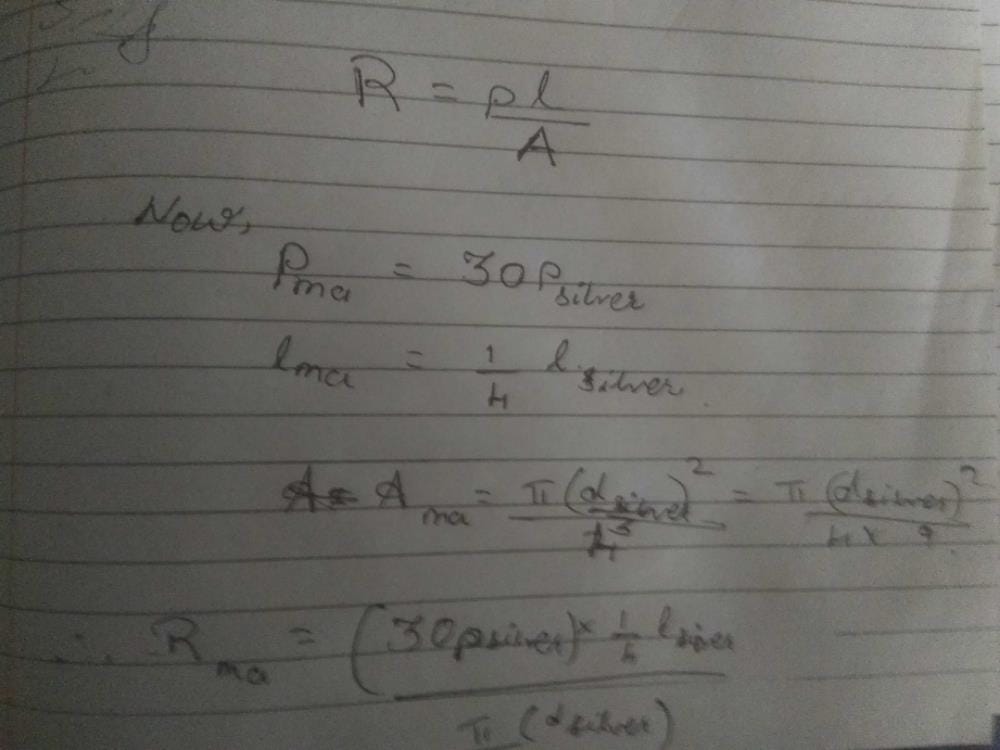 R = ρl/A
Now,
ρma = 30ρsilver
lma = 1/4 lsilver
Ama = π(dsilver)²/4 = π(dsilver)²/4×9
∴ Rma = (30ρsilver) × 1/4 lsilver
π(dsilver)